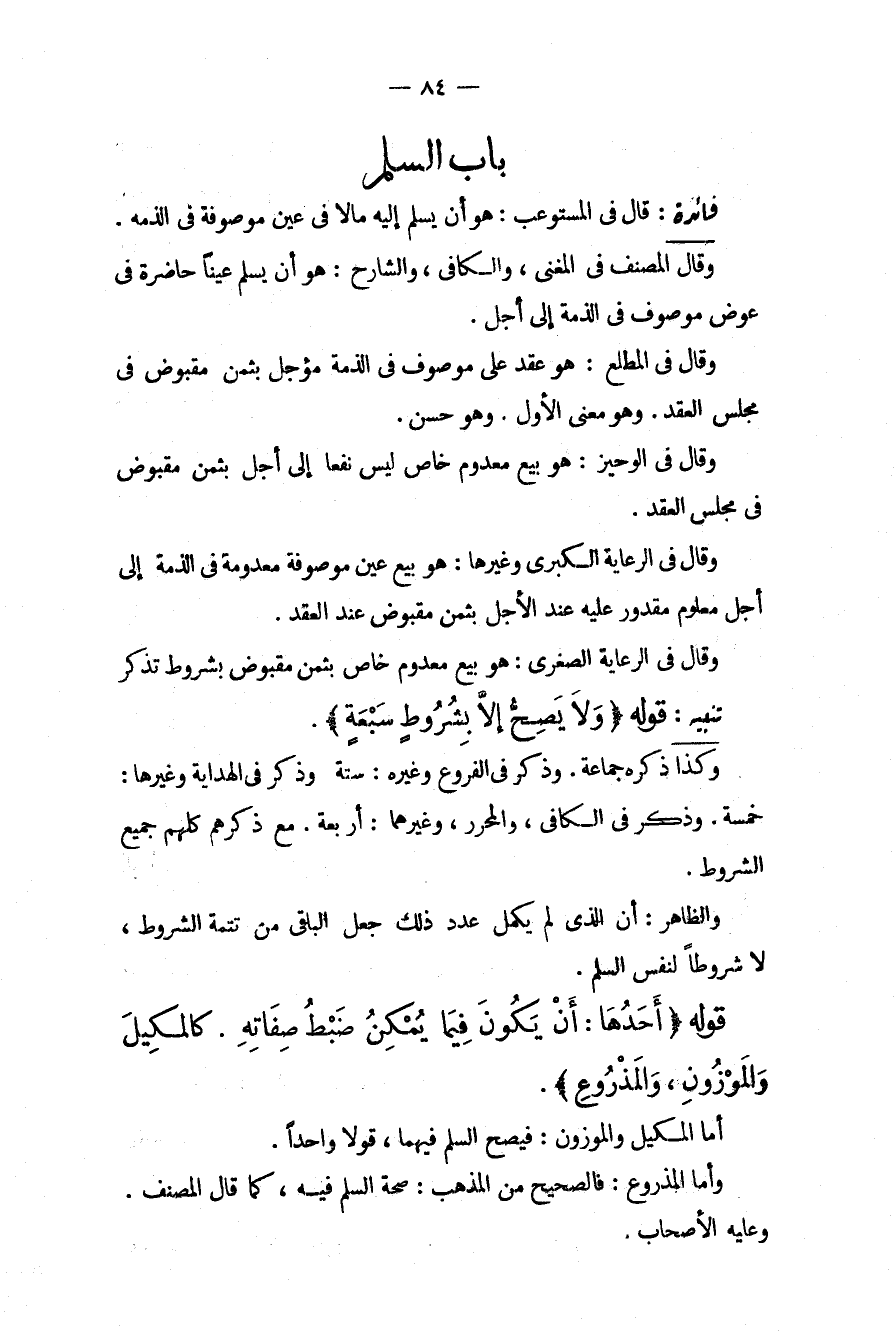 — ٨٤ —
باب السلم
فائدة : قال فى المستوعب : هو أن يسلم إليه مالا فى عين موصوفة فى الذمه .
وقال المصنف فى المغنى ، والكافى ، والشارح : هو أن يسلم عيناً حاضرة فى
عوض موصوف فى الذمة إلى أجل .
وقال فى المطلع : هو عقد على موصوف فى الذمة مؤجل بثمن مقبوض فى
مجلس العقد . وهو معنى الأول . وهو حسن .
وقال فى الوجيز : هو بيع معدوم خاص ليس نفعا إلى أجل بثمن مقبوض
فى مجلس العقد .
وقال فى الرعاية الكبرى وغيرها : هو بيع عين موصوفة معدومة فى الذمة إلى
أجل معلوم مقدور عليه عند الأجل بثمن مقبوض عند العقد .
وقال فى الرعاية الصغرى : هو بيع معدوم خاص بثمن مقبوض بشروط تذكر
تنبيه : قوله ﴿ وَلاَ يَصِحُّ إلاَّ بِشُرُوطٍ سَبْعَةٍ ﴾ .
وكذا ذكره جماعة . وذكر فى الفروع وغيره : ستة وذكر فى الهداية وغيرها :
خمسة . وذكر فى الكافى ، والمحرر ، وغيرهما : أربعة . مع ذكرهم كلهم جميع
الشروط .
والظاهر : أن الذى لم يكمل عدد ذلك جعل الباقى من تتمة الشروط ،
لا شروطاً لنفس السلم .
قوله ﴿ أَحَدُهَا : أَنْ يَكُونَ فِيَما يُمْكِنُ ضَبْطُ صِفَاتِهِ . كالمكِيلَ
وَالَموْزُونِ ، وَالَمذْرُوعِ ﴾ .
أما المكيل والموزون : فيصح السلم فيهما ، قولا واحداً .
وأما المذروع : فالصحيح من المذهب : صحة السلم فيه ، كما قال المصنف .
وعليه الأصحاب .